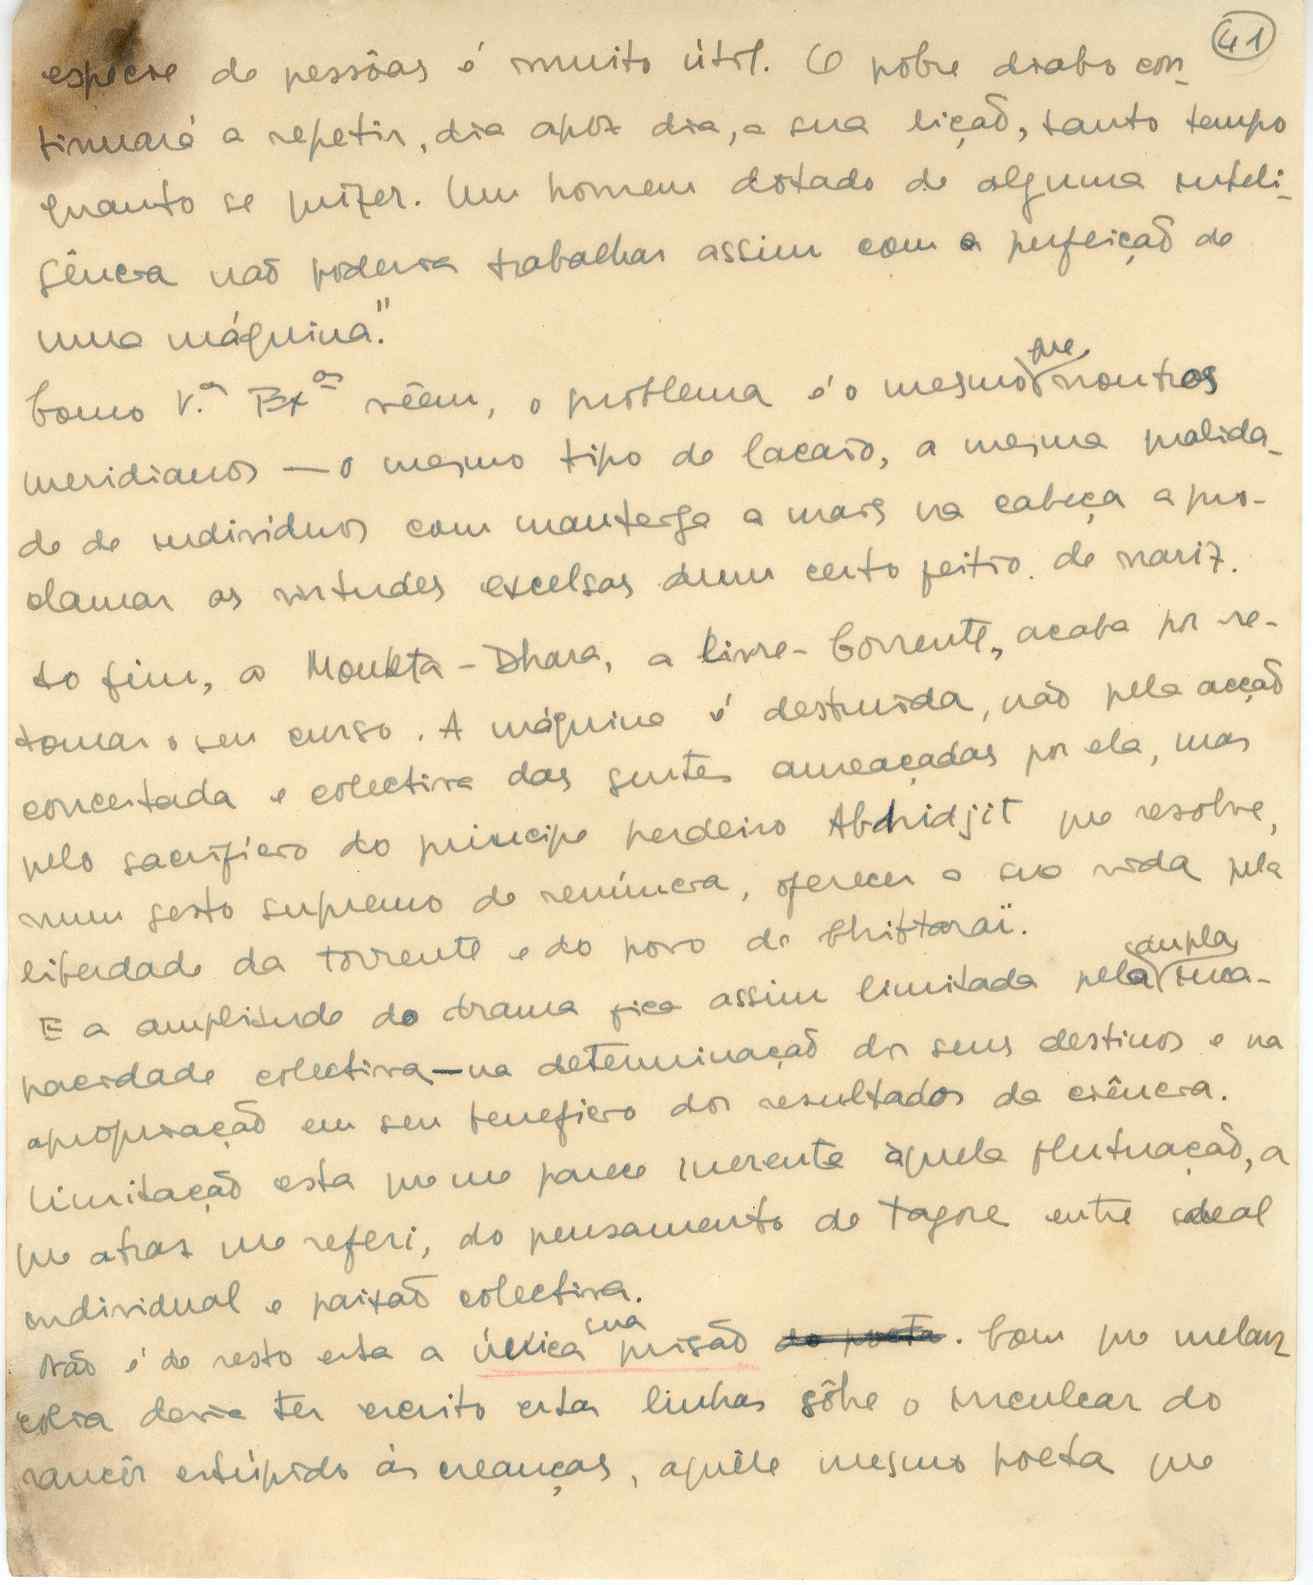 41
espécie de pessôas é muito útil. O pobre diabo con-
tinuará a repetir, dia após dia, a sua lição, tanto tempo
quanto se quizer. Um homem dotado de alguma inteli-
gência não poderia trabalhar assim com a perfeição de
uma máquina."
Como V.as Exas vêem, o problema é o mesmo que noutros
meridianos — o mesmo tipo de lacaio, a mesma qualida-
de de indivíduos com manteiga a mais na cabeça a pro-
clamar as virtudes excelsas dum certo feitio de nariz.
Ao fim, a Moukta-Dhara, a livre-Corrente, acaba por re-
tomar o seu curso. A máquina é destruida, não pela acção
concertada e colectiva das gentes ameaçadas por ela, mas
pelo sacrifício do principe herdeiro Abhidjit que resolve,
num gesto supremo de renúncia, oferecer a sua vida pela
liberdade da torrente e do povo de Chittaraï.
E a amplitude do drama fica assim limitada pela dupla inca-
pacidade colectiva—na determinação dos seus destinos e na
apropriação em seu benefício dos resultados da ciência.
Limitação esta que me parece inerente àquela flutuação, a
que atras me referi, do pensamento de Tagore entre ideal
individual e paixão colectiva.
Não é de resto esta a única sua prisão do poeta. Com que melan-
colia devia ter escrito estas linhas sôbre o inculcar do
rancôr estúpido às creanças, aquêle mesmo poeta que